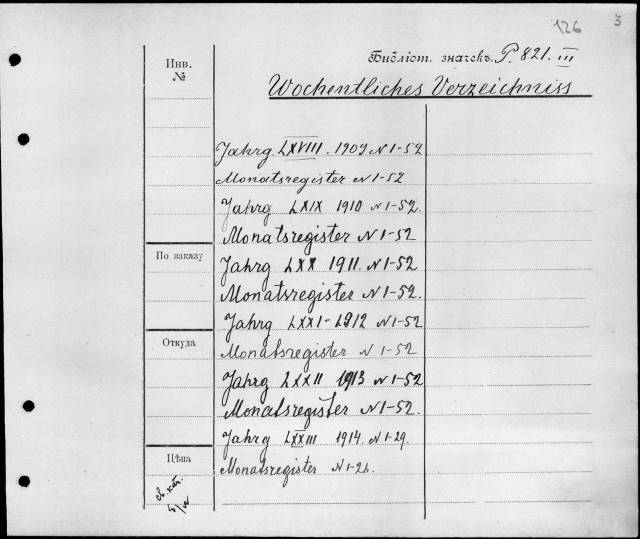 126 3
Библіот. значекъ P. 821. III
Wochentliches Verzeichniss
Инв.
№
Jahrg. LXVIII. 1909 N 1-52
Monatsregister N 1-52
Jahrg LXIX 1910 N 1-52.
Monatsregister N 1-52
По заказу
Jahrg LXX 1911. N 1-52
Monatsregister N 1-52.
Jahrg LXXI - 1912 N 1-52
Откуда
Monatsregister N 1-52
Jahrg LXXII 1913 N 1-52
Monatsregister N 1-52.
Jahrg LXXIII 1914. N 1-29.
Цѣна
Monatsregister N 1-26.